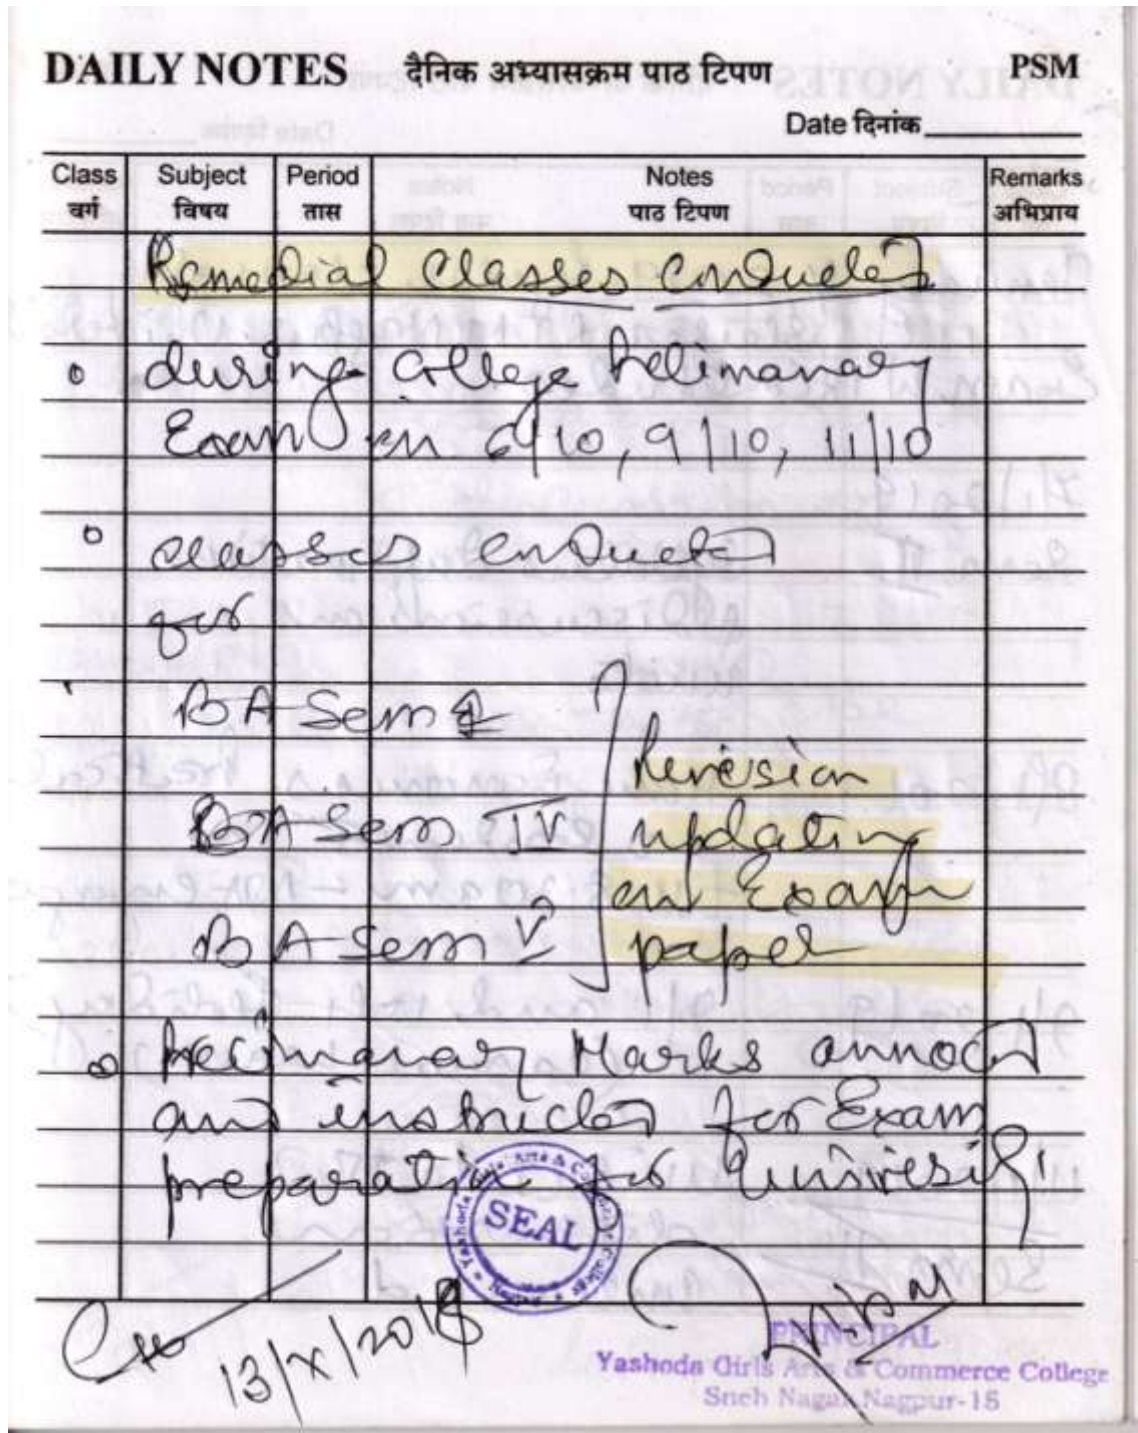 DAILY NOTES दैनिक अभ्यासक्रम पाठ टिपण PSM
Date दिनांक
Class Subject Period Notes Remarks
वर्ग विषय तास पाठ टिपण अभिप्राय
Remedial Classes Conducted
during College Prelimanary
Exam on 6/10, 9/10, 11/10
classes conducted
for
BA Sem
Revision
BA Sem IV updating
on Exam
BA Sem V paper
Prelimanary Marks
and instructed for Exam
preparation for University
SEAL
13/X/2018
PRINCIPAL
Yashoda Girls Arts & Commerce College
Sneh Nagar Nagpur-15